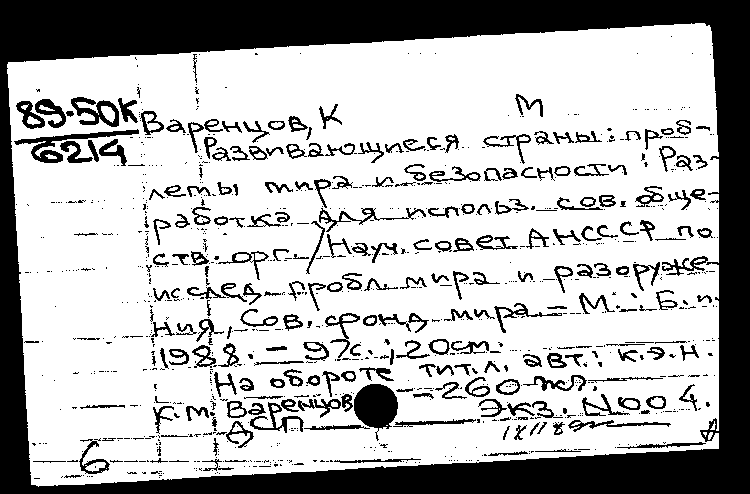 М
89-50К
6214
Варенцов, К
Развивающиеся страны: проб-
лемы мира и безопасности: Раз-
работка для использ. сов. обще-
ств. орг. / Науч. совет АН СССР по
исслед. пробл. мира и разоруже-
ния, Сов. фонд мира. - М.: Б. и.
1988. - 97с.; 20см.
На обороте тит. л. авт.: к.э.н.
К. М. Варенцов - 260 экз.
ДСП Экз. N004.
6